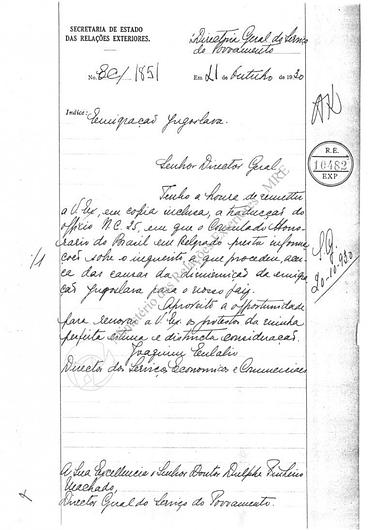 SECRETARIA DE ESTADO
DAS RELAÇÕES EXTERIORES.
Directoria Geral do Serviço
do Povoamento
No. EC/1851
Em 21 de Outubro de 1930
Indice:
Emigração Yugoslava.
AK
R.E.
10482
EXP
Senhor Director Geral,
Tenho a honra de remetter
a V. Ex., em copia inclusa, a traducção do
officio N.C. 25, em que o Consulado Hono-
rario do Brasil em Belgrado presta informa-
ções sobre o inquerito, a que procedeu, acer-
ca das causas da diminuição de emigra-
ção Yugoslava para o nosso paiz.
1/1
20-10-930
Aproveito a opportunidade
para renovar a V. Ex. os protestos da minha
perfeita estima e distincta consideração.
Joaquim Eulalio
Director dos Serviços Economicos e Commerciaes
A Sua Excellencia o Senhor Doutor Dulphe Pinheiro
Machado,
Director Geral do Serviço do Povoamento.
Ministério das Relações Exteriores - MRE